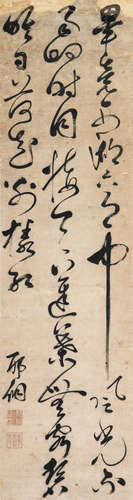 畢竟西湖六月中風光不
與四時同接天蓮葉無窮碧
映日荷花別樣紅
邢侗